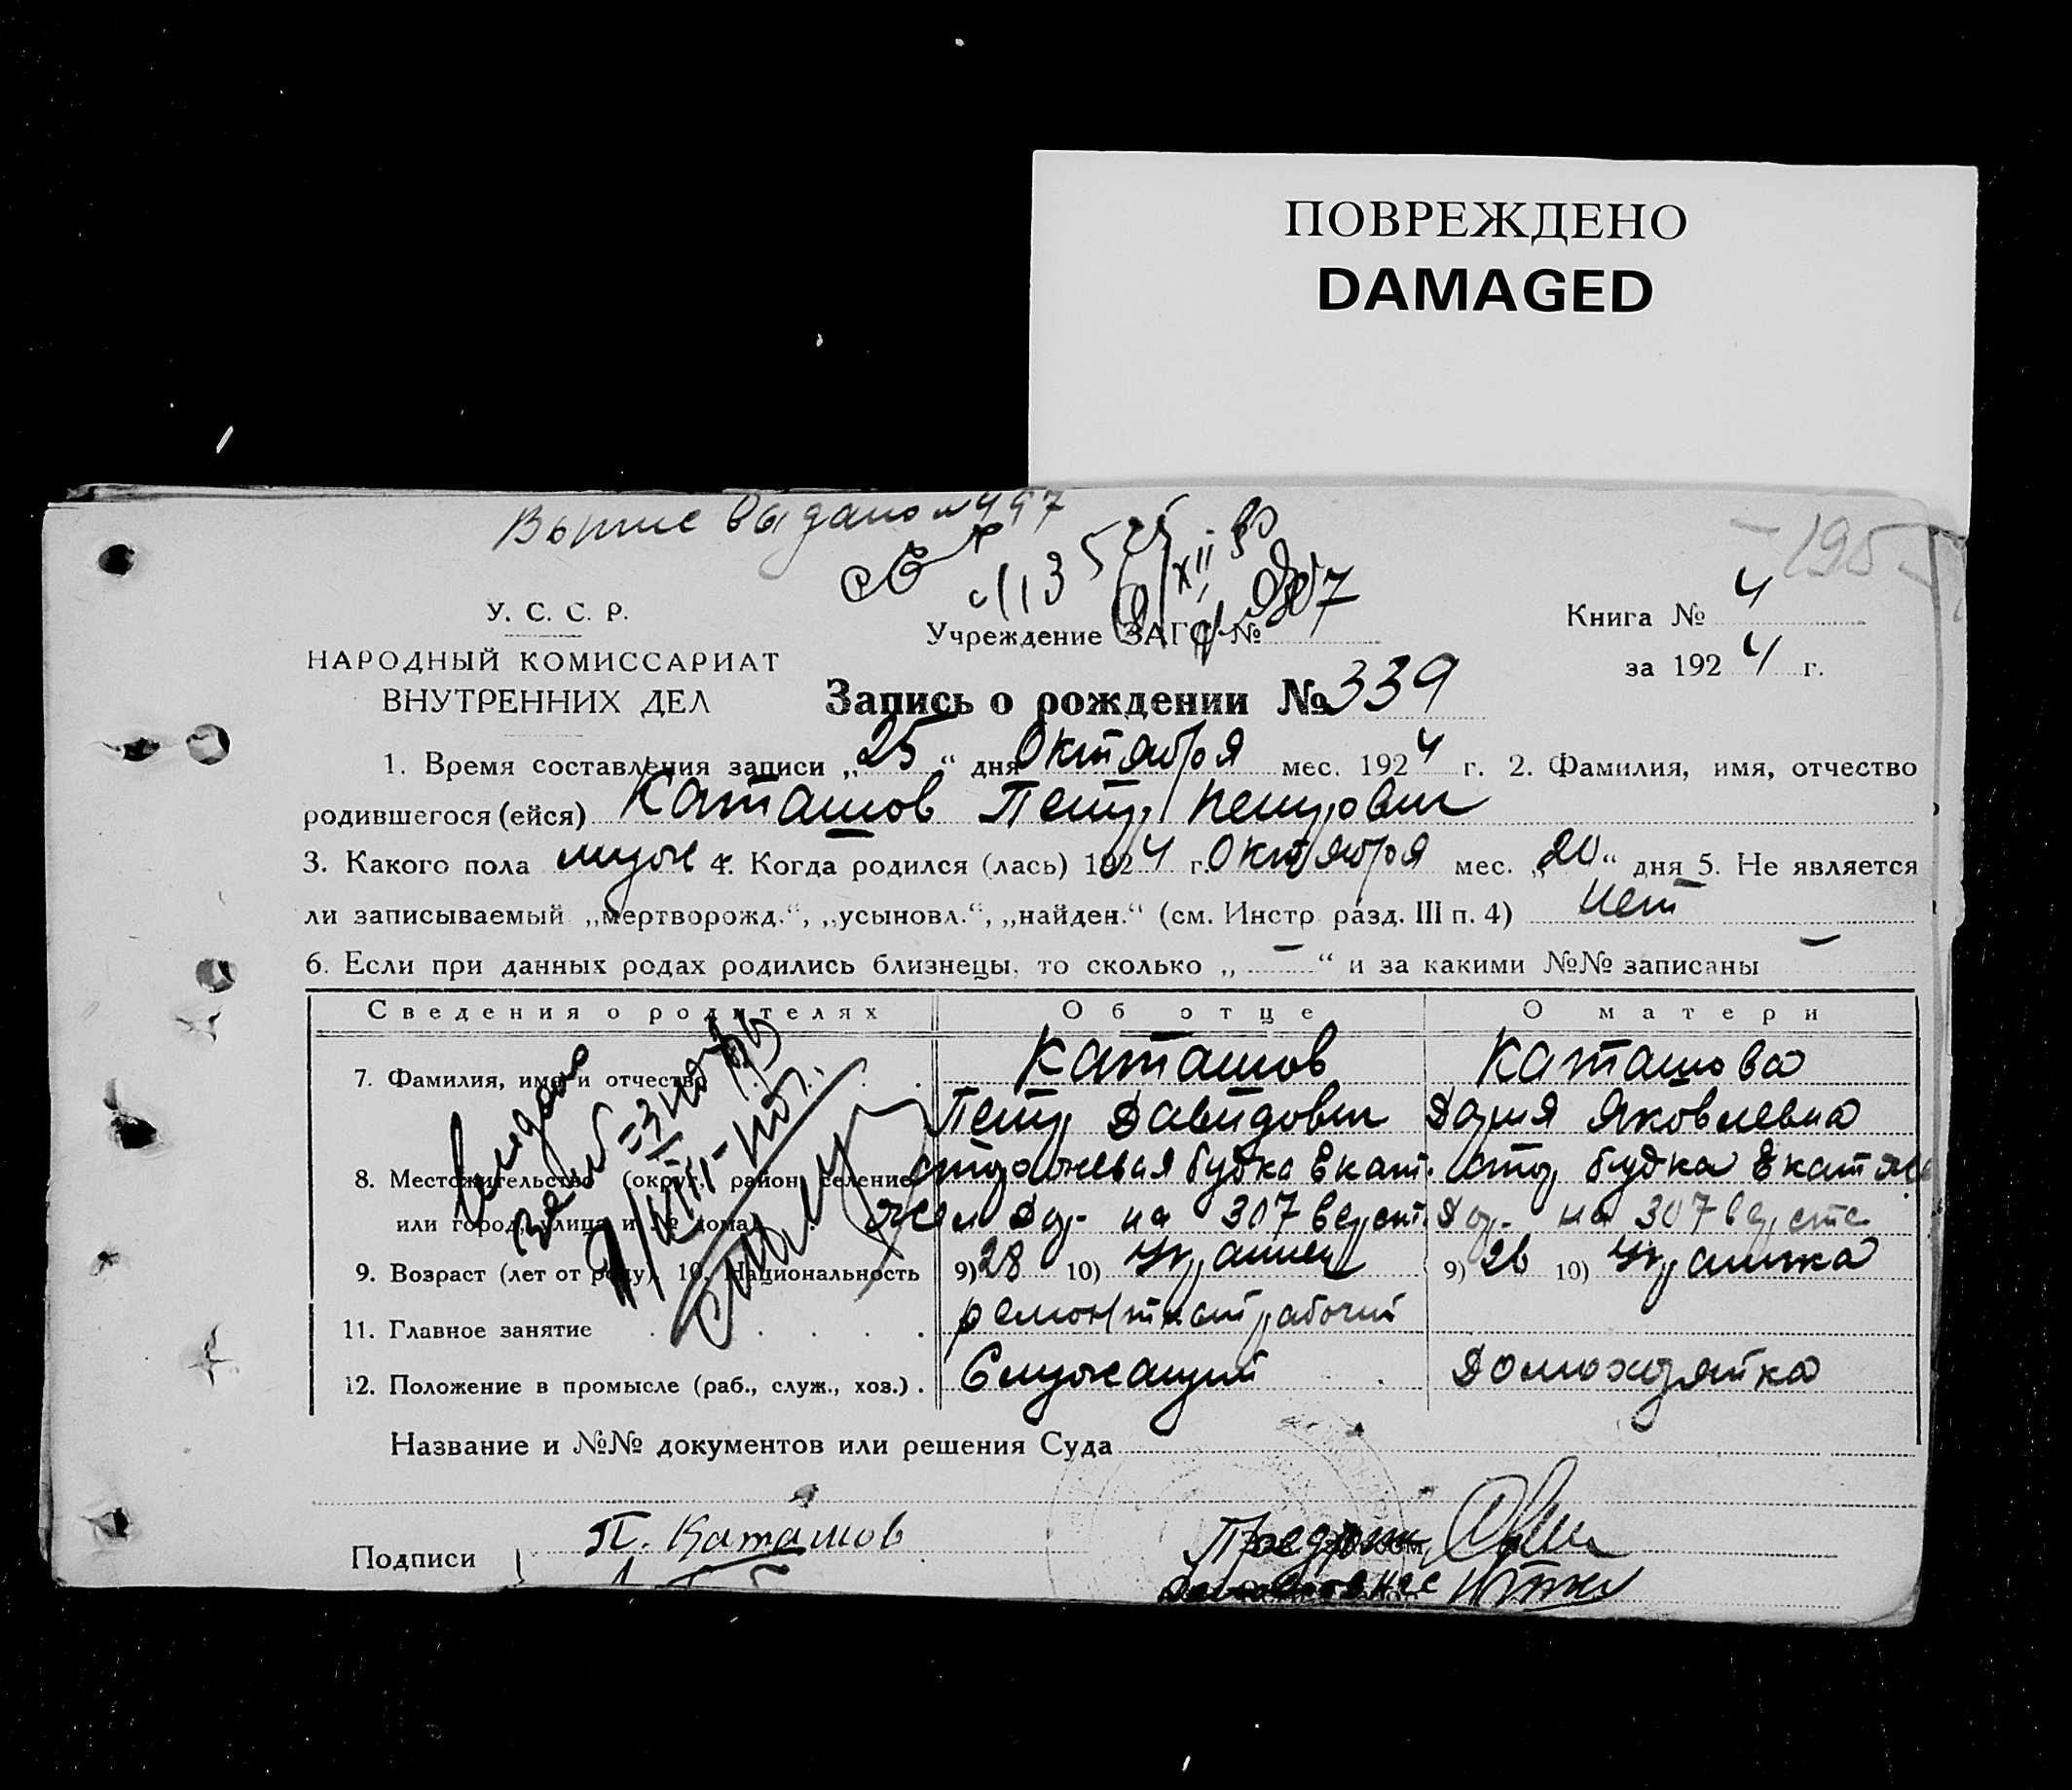 ПОВРЕЖДЕНО
DAMAGED
выдано № 497
195
У. С. С. Р.
НАРОДНЫЙ КОМИССАРИАТ
ВНУТРЕННИХ ДЕЛ
Учреждение ЗАГС №
Книга № 4
за 1924 г.
Запись о рождении № 339
1. Время составления записи „25“ дня Октября мес. 1924 г. 2. Фамилия, имя, отчество
родившегося (ейся) Каташов Петр Петрович
3. Какого пола муж 4. Когда родился (лась) 1924 г. Октября мес. „20“ дня 5. Не является
ли записываемый „мертворожд.“, „усыновл.“, „найден.“ (см. Инстр разд. III п. 4) нет
6. Если при данных родах родились близнецы, то сколько „—“ и за какими №№ записаны —
Сведения о родителях Об отце О матери
7. Фамилия, имя и отчество Каташов Каташова
Петр Давидович Дария Яковлевна
8. Местожительство (округ, район, селение сторожевая будка Екат. стор будка Екат
или город, улица и № дома) жел дор. на 307 верст. дор. на 307 версте
9. Возраст (лет от роду). 10. Национальность 9) 28 10) Украинец 9) 26 10) Украинка
11. Главное занятие ремонтный рабочий
12. Положение в промысле (раб., служ., хоз.) Служащий Домохозяйка
Название и №№ документов или решения Суда
Подписи П. Каташов